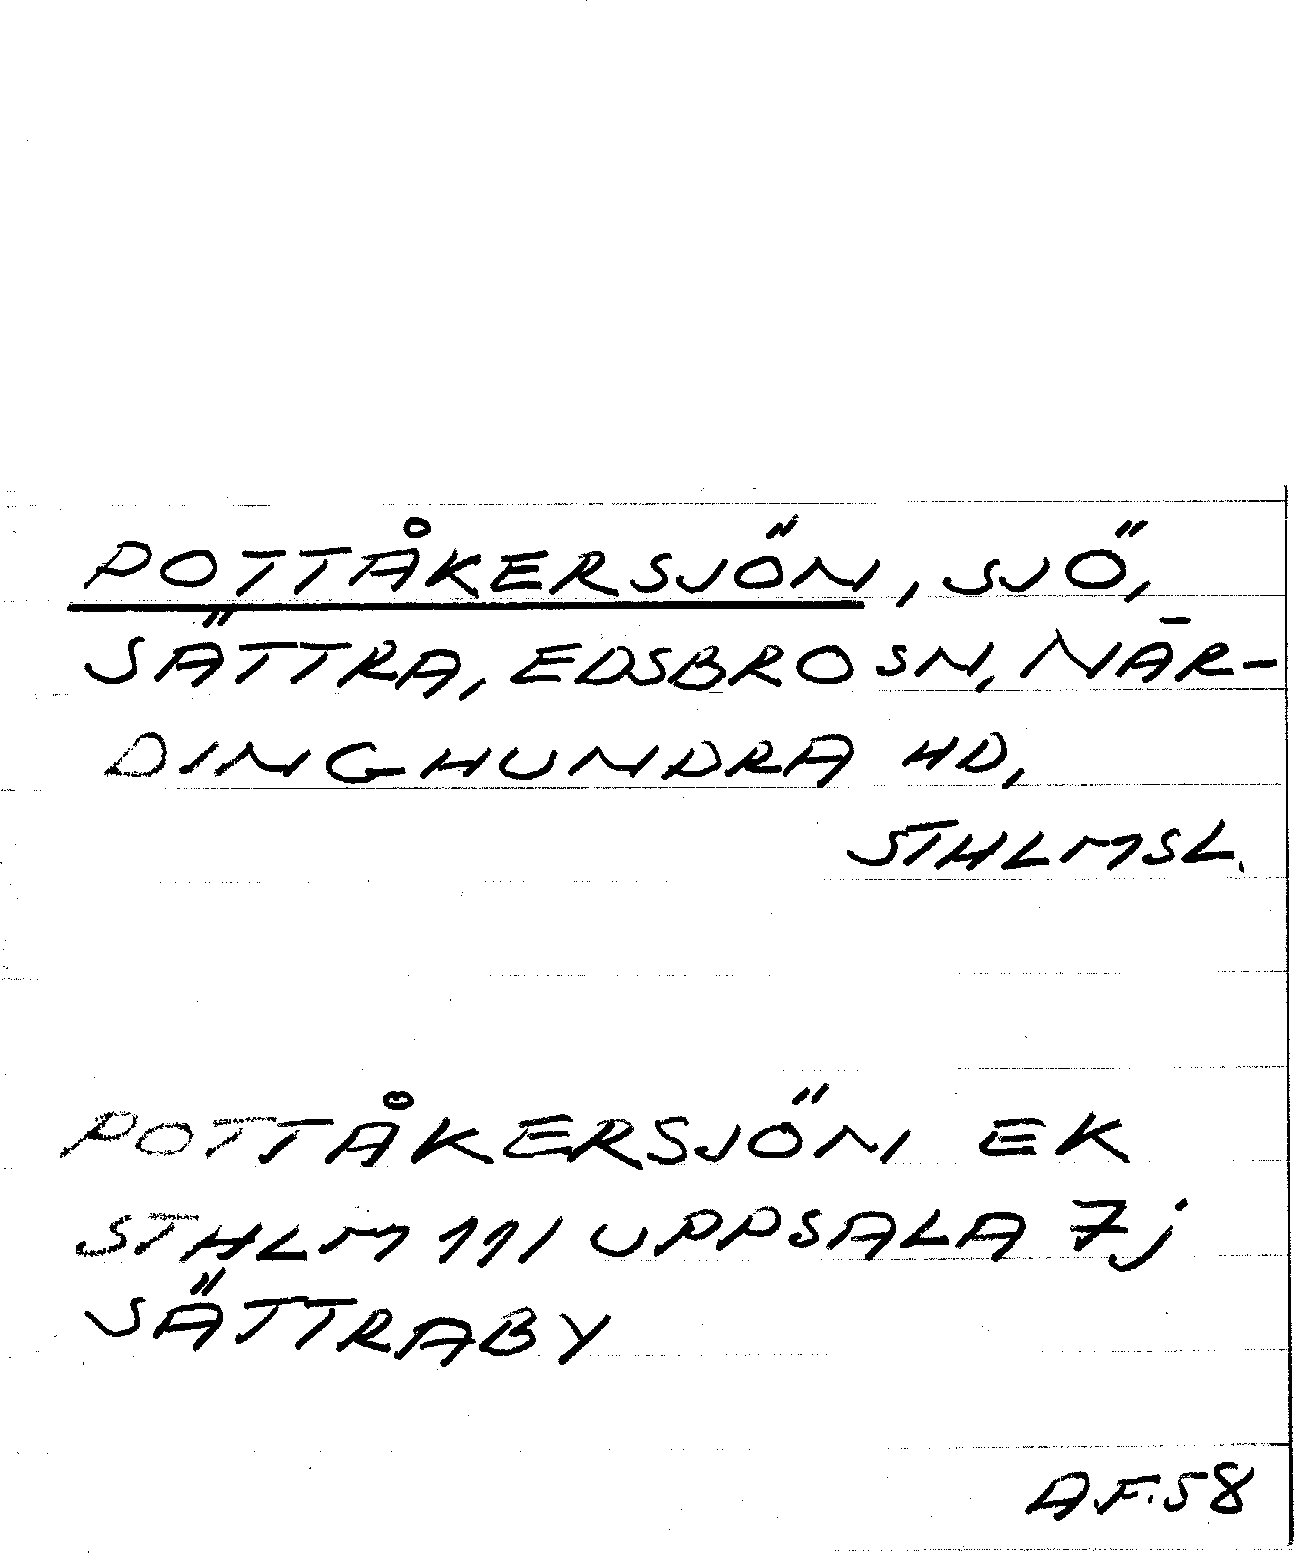 POTTÅKERSJÖN, SJÖ,
SÄTTRA, EDSBRO SN, NÄR-
DINGHUNDRA HD,
STHLMSL.
POTTÅKERSJÖN EK
STHLM 111 UPPSALA 7j
SÄTTRABY
A.F. 58